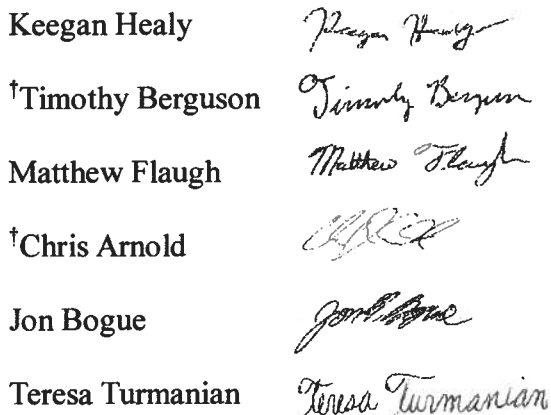 Keegan Healy Keegan Healy
†Timothy Berguson Timothy Berguson
Matthew Flaugh Matthew Flaugh
†Chris Arnold
Jon Bogue Jon Bogue
Teresa Turmanian Teresa Turmanian